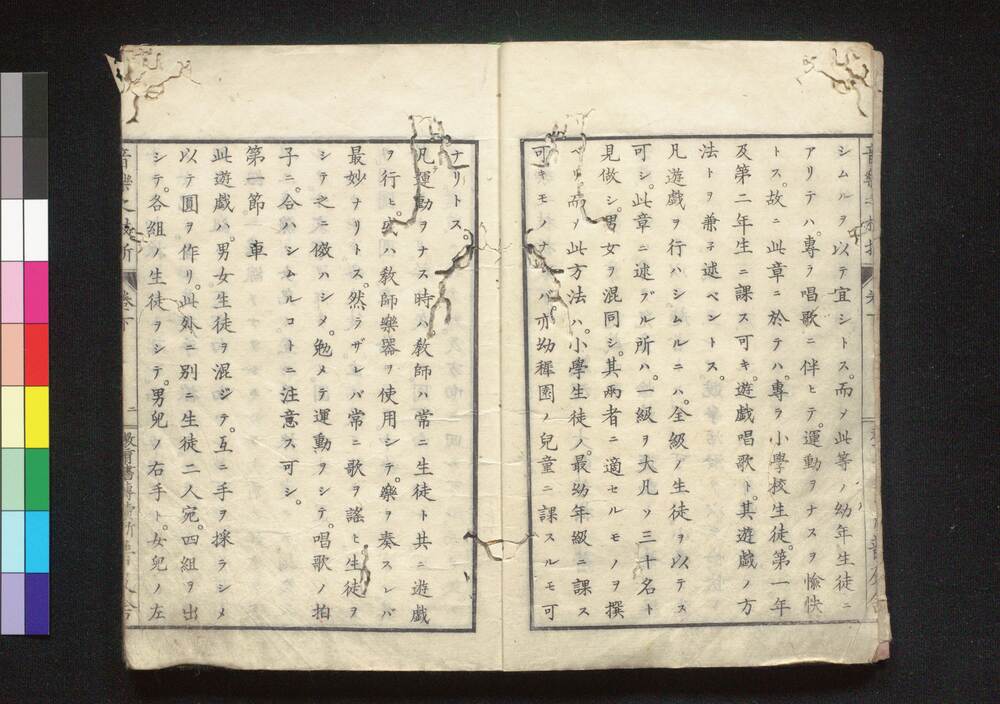 シムルヲ以テ宜シトス。而メ此等ノ幼年生徒ニ
アリテハ。專ラ唱歌ニ伴ヒテ。運動ヲナスヲ愉快
トス。故ニ此章ニ於テハ。專ラ小學校生徒。第一年
及第二年生ニ課ス可キ。遊戯唱歌ト。其遊戯ノ方
法トヲ兼子述ベントス。
凡遊戯ヲ行ハシムルニハ。全級ノ生徒ヲ以テス
可シ。此章ニ述ブル所ハ。一級ヲ大凡ソ三十名ト
見做シ。男女ヲ混同シ。其兩者ニ適セルモノヲ撰
而ノ此方法ハ。小學生徒ノ。最幼年級ニ課ス
可キモノナ バ。亦幼穉園ノ兒童ニ課スルモ可
ナリトス。
凡運動ヲナス時ハ。教師ハ常ニ生徒ト共ニ遊戯
ヲ行ヒ。或ハ教師樂器ヲ使用シテ。樂ヲ奏スレバ
最妙ナリトス。然ラザレバ常ニ歌ヲ謠ヒ生徒ヲ
シテ之ニ傚ハシメ。勉メテ運動ヲシテ。唱歌ノ拍
子ニ。合ハシムルコトニ注意ス可シ。
第一節 車
此遊戯ハ。男女生徒ヲ混ジテ。互ニ手ヲ採ラシメ
以テ圓ヲ作リ。此外ニ別ニ生徒二人宛。四組ヲ出
シテ。各組ノ生徒ヲシテ。男兒ノ右手ト。女兒ノ左
音樂之枝折 卷下 二